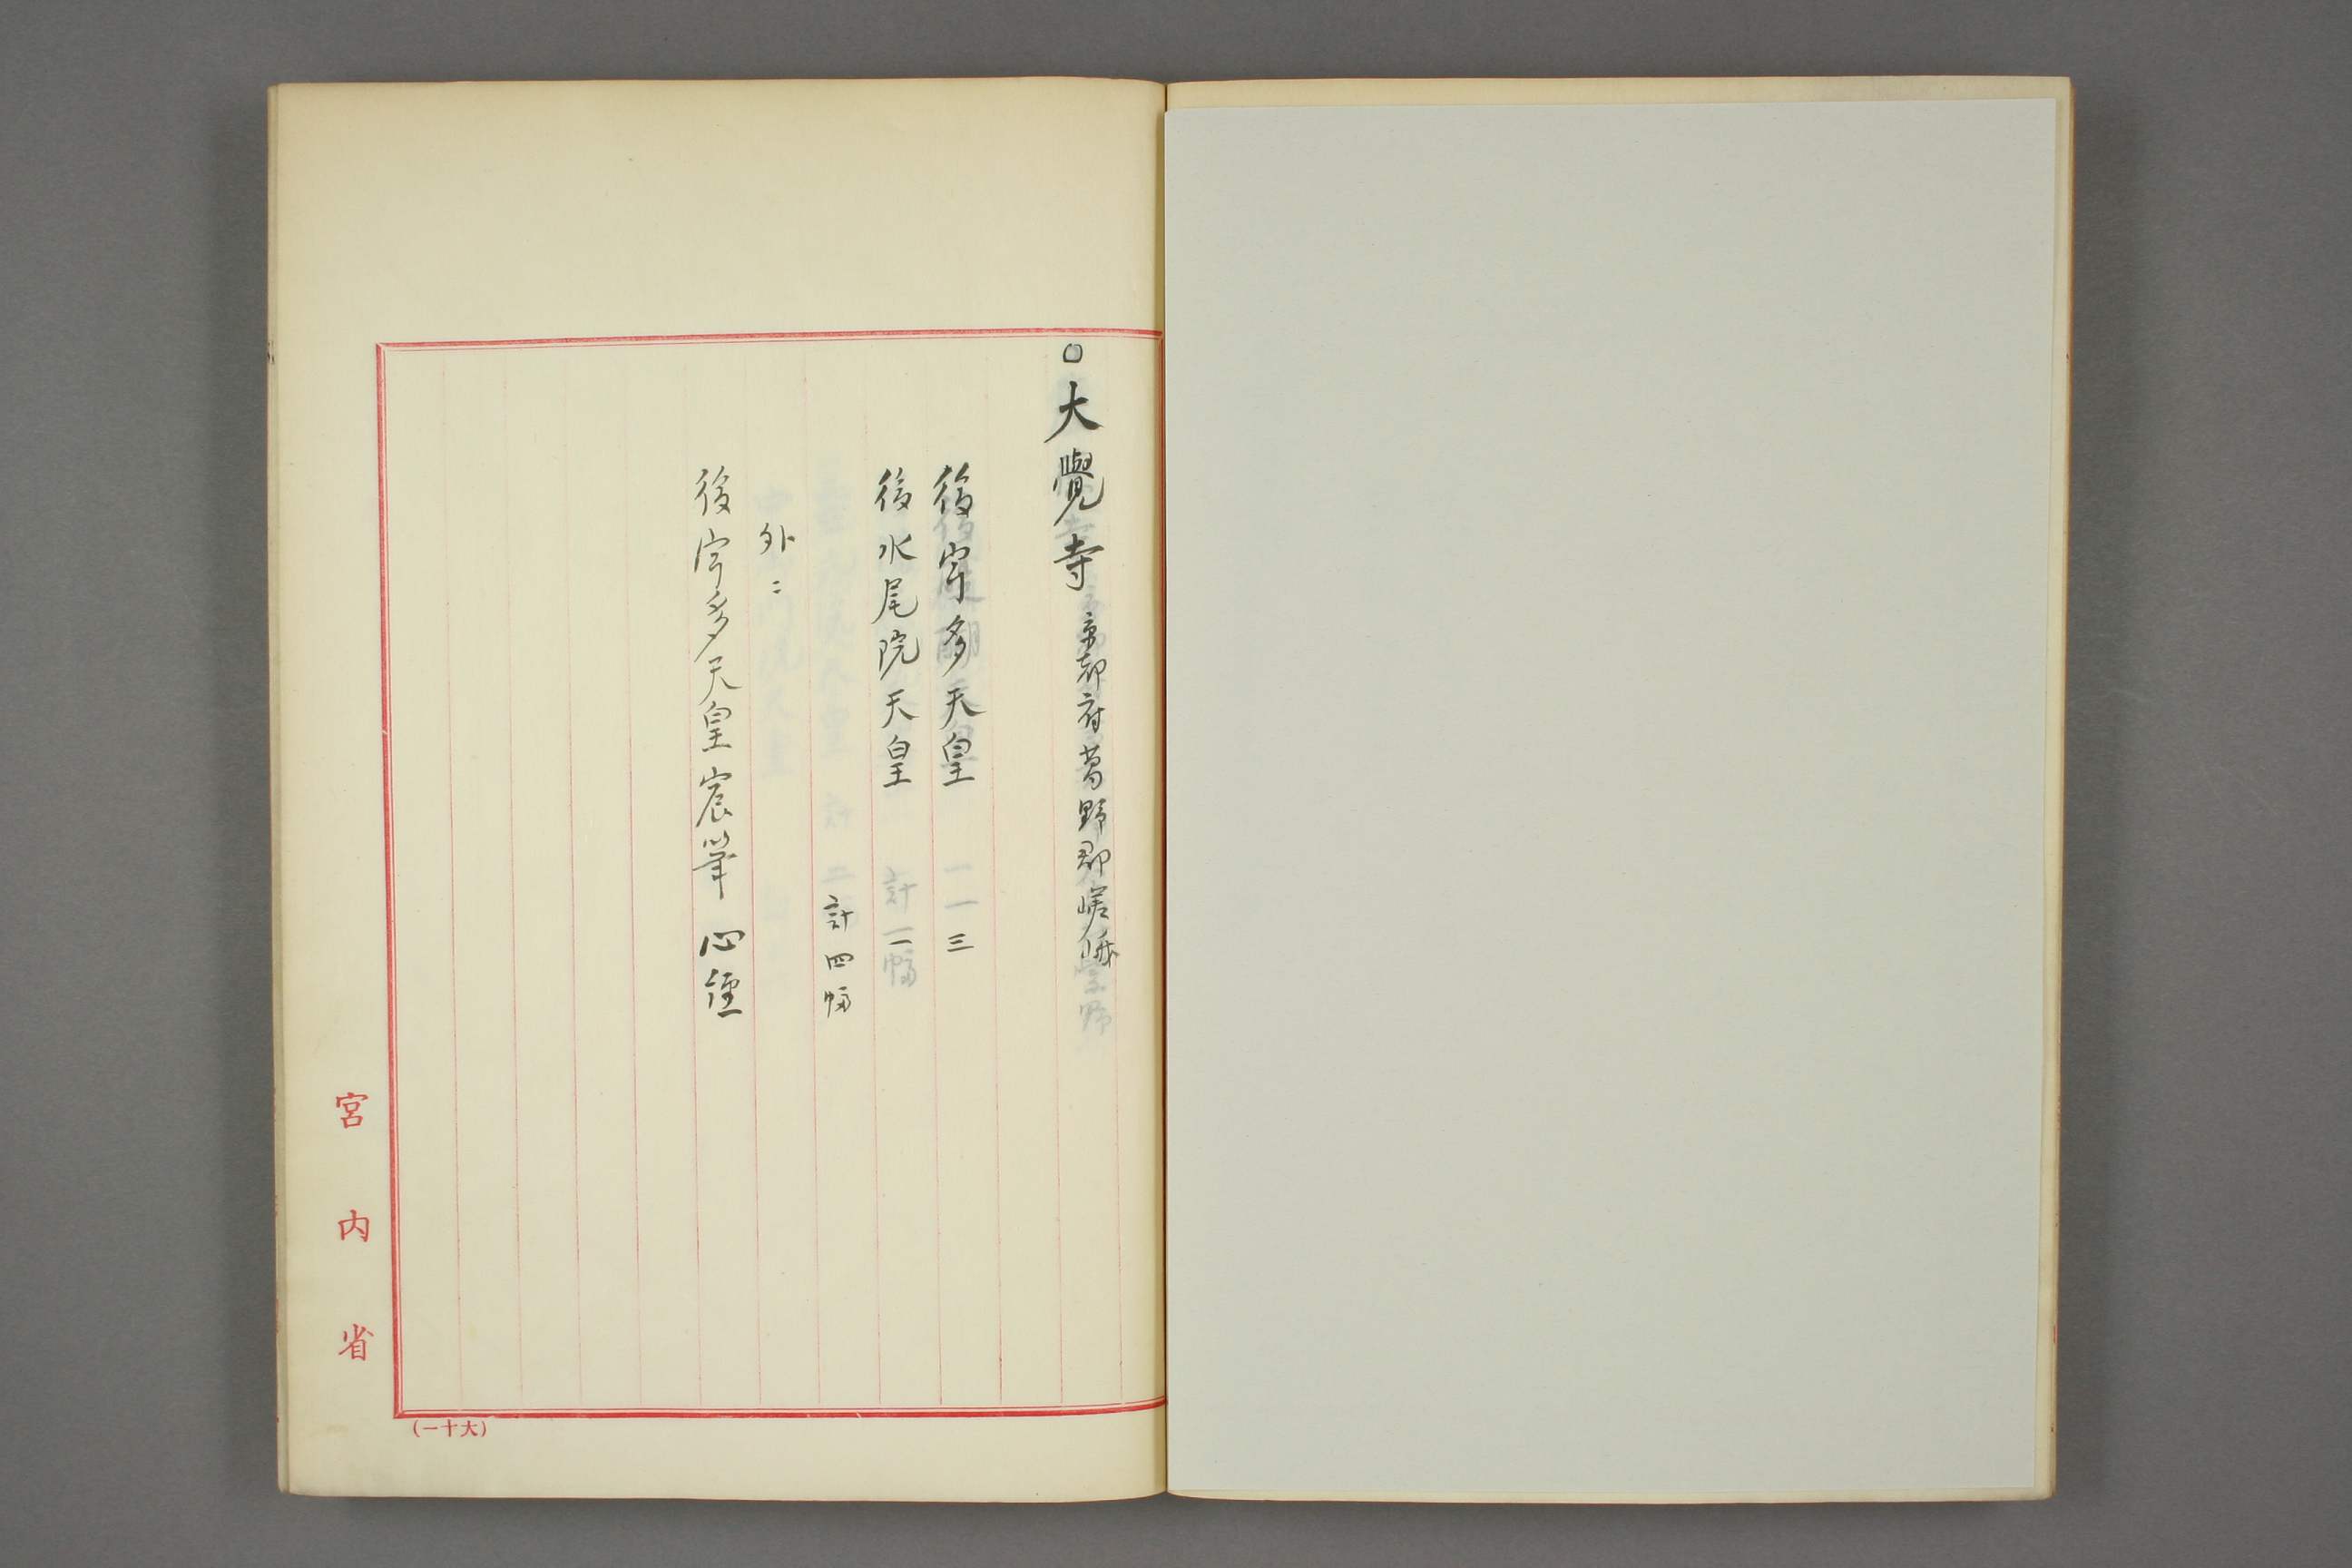 ○大覺寺 京都府葛野郡嵯峨
後宇多天皇 三
後水尾院天皇 一
計四幅
外ニ
後宇多天皇宸筆 心經
宮内省
(大十一)